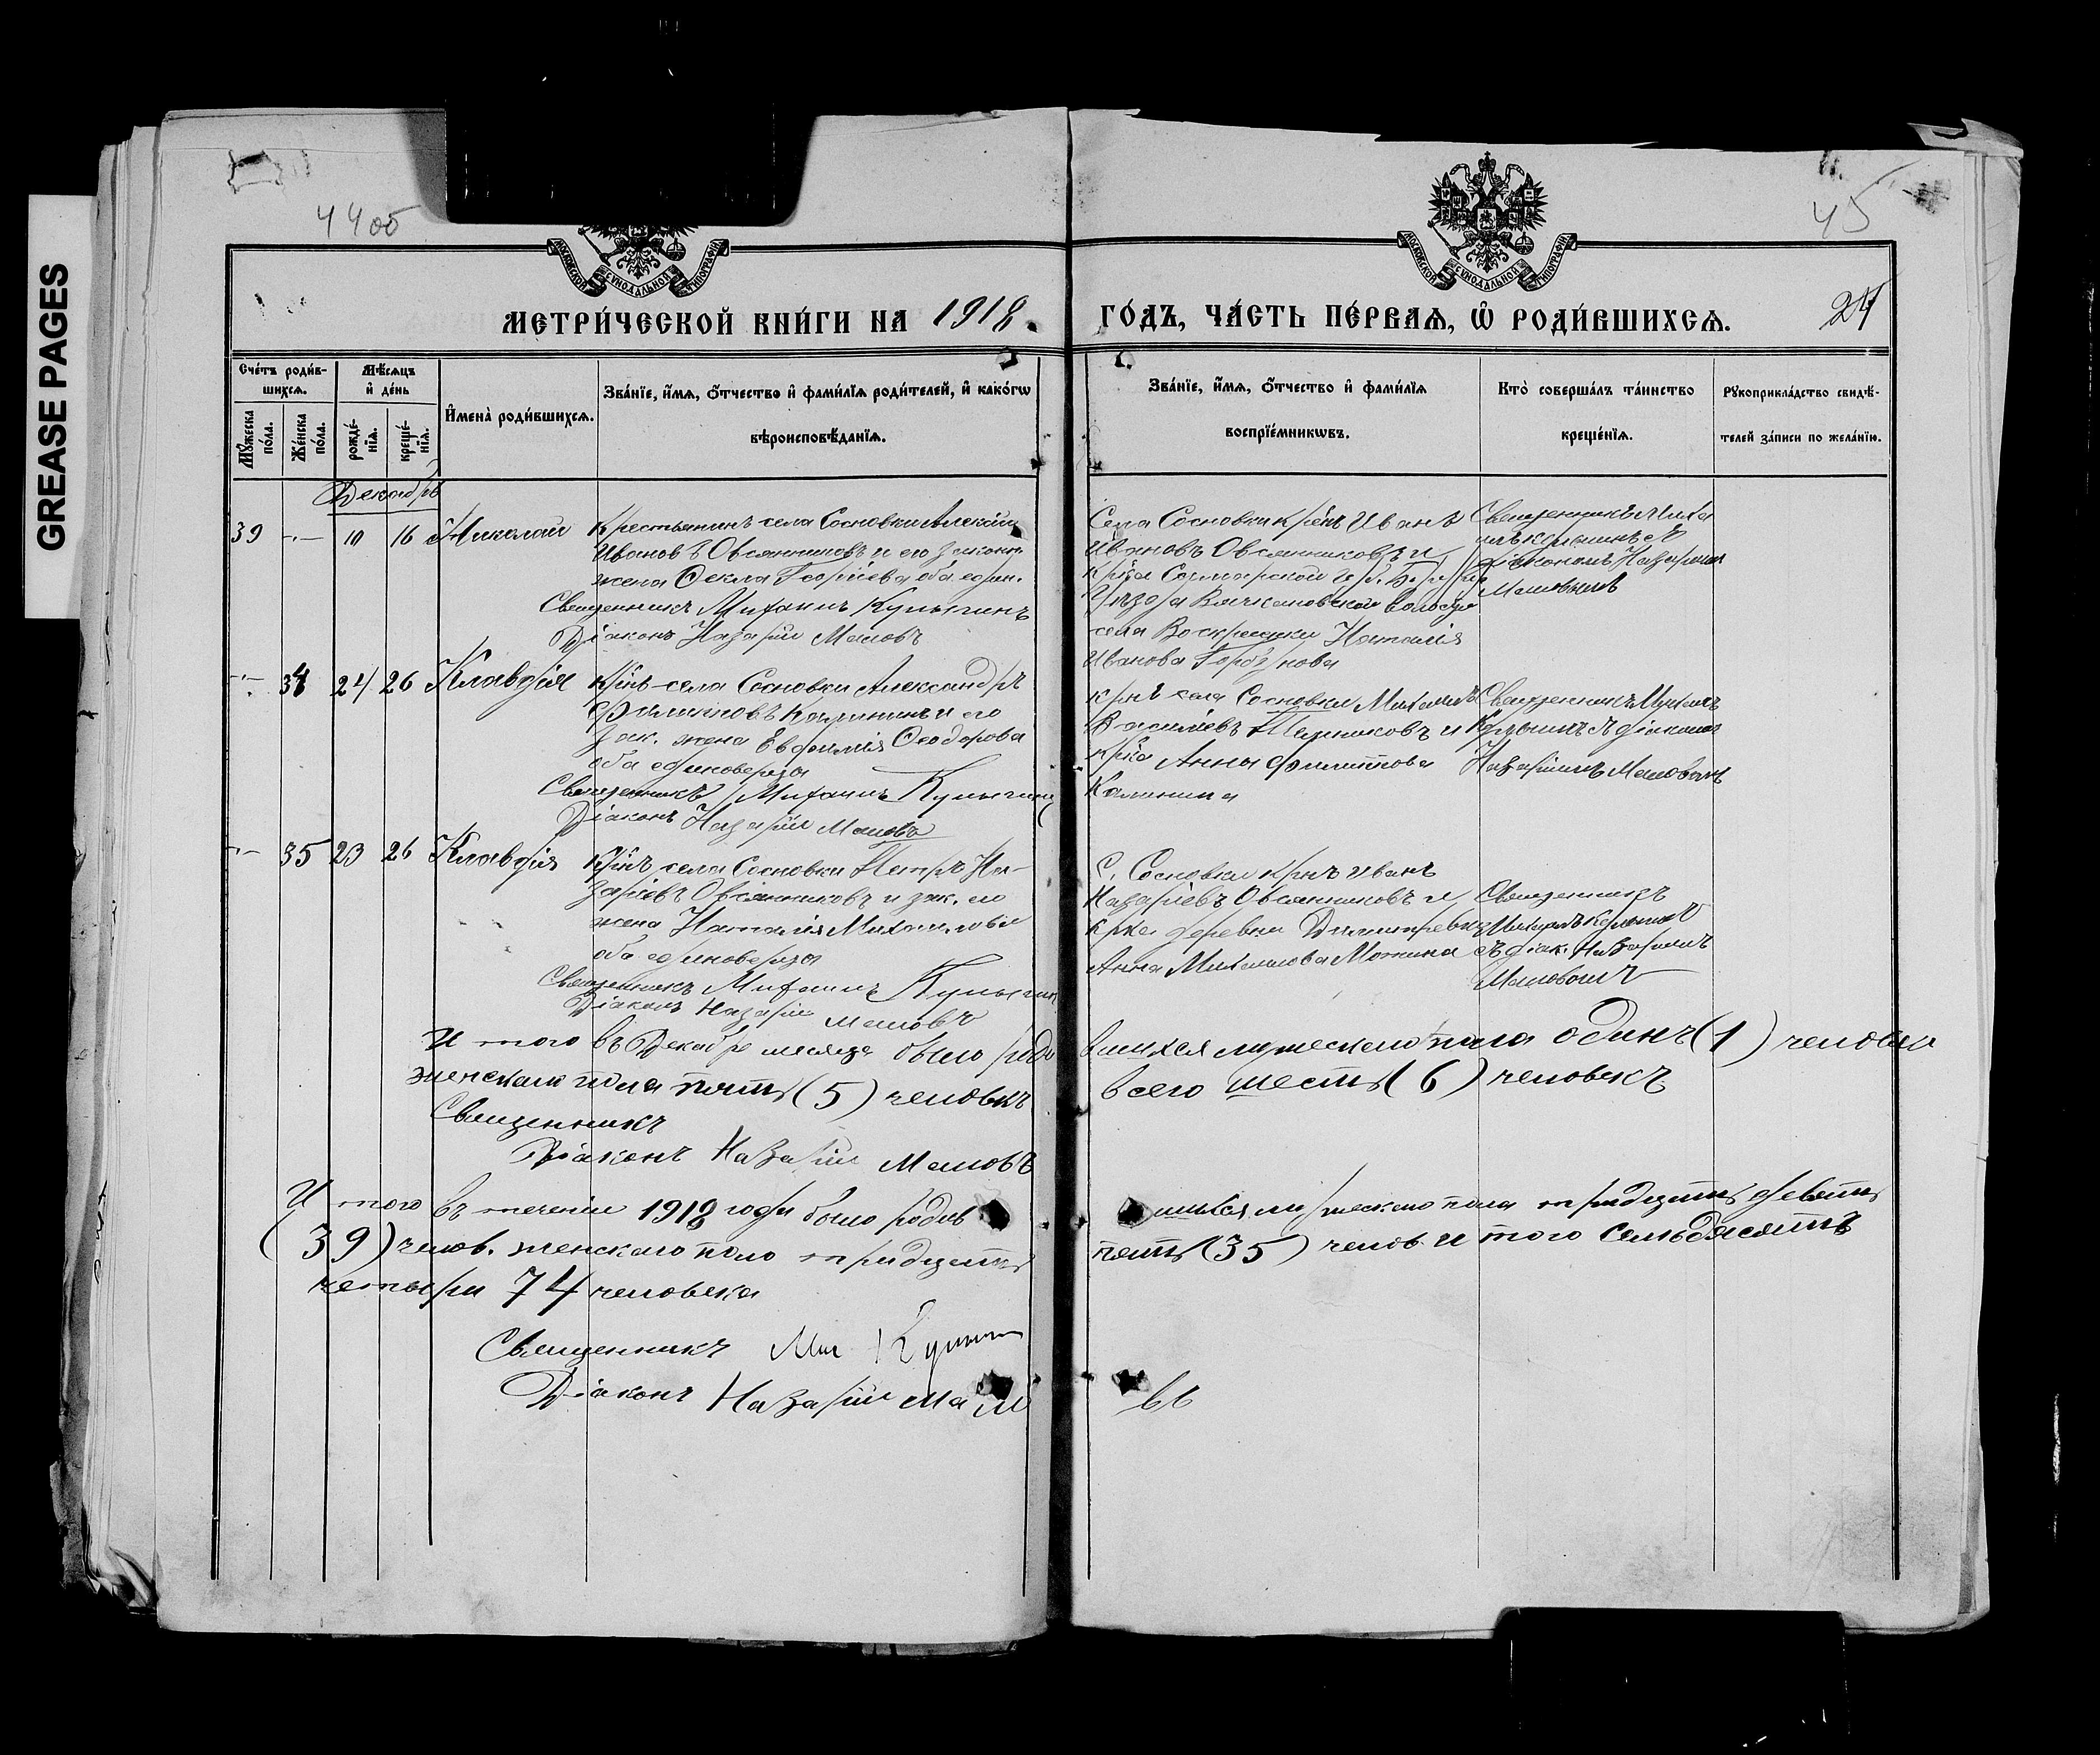 GREASE PAGES
44об
45
24
МОСКОВСКОЙ СѴНОДАЛЬНОЙ ТИПОГРАФІИ
МОСКОВСКОЙ СѴНОДАЛЬНОЙ ТИПОГРАФІИ
МЕТРИ́ЧЕСКОЙ КНИ́ГИ НА 1918
ГО́ДЪ, ЧА́СТЬ ПЕ́РВАѦ, Ѡ҆ РОДИ́ВШИХСѦ.
Сче́тъ роди́в-
шихсѧ.
Мѣ́сѧцъ
и҆ де́нь
Мꙋ́жеска
по́ла.
Же́нска
по́ла.
рожде́-
нїѧ.
креще́-
нїѧ.
И҆мена̀ роди́вшихсѧ.
Зва́нїе, и҆́мѧ, ѻ҆́тчество и҆ фами́лїѧ роди́телей, и҆ како́гѡ
вѣроисповѣ́данїѧ.
Зва́нїе, и҆́мѧ, ѻ҆́тчество и҆ фами́лїѧ
воспрїе́мникѡвъ.
Кто̀ соверша́лъ та́инство
креще́нїѧ.
Рꙋкоприкла́дство свидѣ́-
телей за́писи по жела́нїю.
Декабрь
39 10 16 Николай
Крестьянинъ села Сосновки Алексій
Ивановъ Овсянниковъ и его законн.
жена Фекла Георгіева оба един.
Священникъ Михаилъ Кулыгинъ
Діаконъ Назарій Маловъ
Села Сосновки крнъ Иванъ
Ивановъ Овсянниковъ и
крка Самарской
Уѣзда волости
села Воскресенки Наталія
Иванова
Священникъ Миха
съ
діакономъ Назаріемъ
Маловымъ
34 24 26 Клавдія
Крнъ села Сосновки Александръ
Филипповъ Калининъ и его
зак. жена Евфимія Феодорова
оба единоверцы
Священникъ Михаилъ Кулыгинъ
Діаконъ Назарій Маловъ
крнъ села Сосновки Михаилъ
Васильевъ и
крка Анна Филиппова
Калинина
Священникъ Михаилъ
Кулыгинъ съ діакономъ
Назаріемъ Маловымъ
35 23 26 Клавдія
Крнъ села Сосновки Петръ На-
заріевъ Овсянниковъ и зак. его
жена Наталія Михайлова
оба единоверцы
Священникъ Михаилъ Кулыгинъ
Діаконъ Назарій Маловъ
С. Сосновки крнъ Иванъ
Назаріевъ Овсянниковъ и
крка деревни
Анна Михайлова Мокина
Священникъ
Михаилъ Кулыгинъ
съ діак. Назаріемъ
Маловымъ
Итого въ Декабре месяце было роди
вшихся мужескаго пола одинъ (1) человекъ
женскаго пола пять (5) человекъ
всего шесть (6) человекъ
Священникъ
Діаконъ Назарій Маловъ
Итого въ теченіи 1918 года было родив
шихся мужескаго пола тридцать девять
(39) челов. женскаго пола тридцать
пять (35) челов. итого семьдесятъ
четыри 74 человека
Священникъ Мих Кулыгин
Діаконъ Назарій Мало
въ